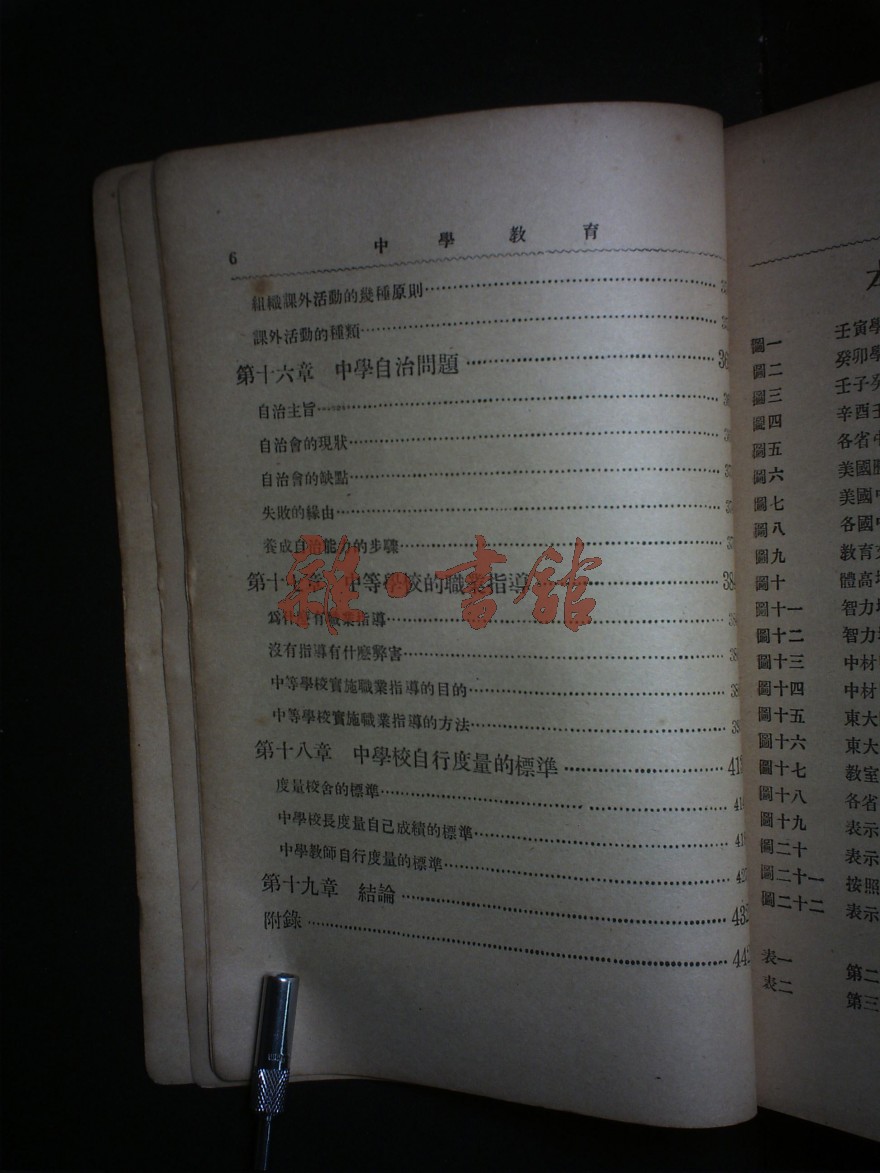 6 中學教育
組織課外活動的幾種原則
課外活動的種類
第十六章 中學自治問題
自治主旨
自治會的現狀
自治會的缺點
失敗的緣由
養成自治能力的步驟
第十七章 中等學校的職業指導
爲什麼有職業指導
沒有指導有什麽弊害
中等學校實施職業指導的目的
中等學校實施職業指導的方法
第十八章 中學校自行度量的標準
度量校舍的標準
中學校長度量自己成績的標準
中學教師自行度量的標準
第十九章 結論
附錄
雜·書館
圖一 壬寅學
圖二 癸卯學
圖三 壬子癸
圖四 辛酉壬
圖五 各省中
圖六 美國
圖七 美國中
圖八 各國中
圖九 教育
圖十 體高
圖十一 智力
圖十二 智力
圖十三 中材
圖十四 中材
圖十五 東大
圖十六 東大
圖十七 教室
圖十八 各省
圖十九 表示
圖二十 表示
圖二十一 按照
圖二十二 表示
表一 第二
表二 第三